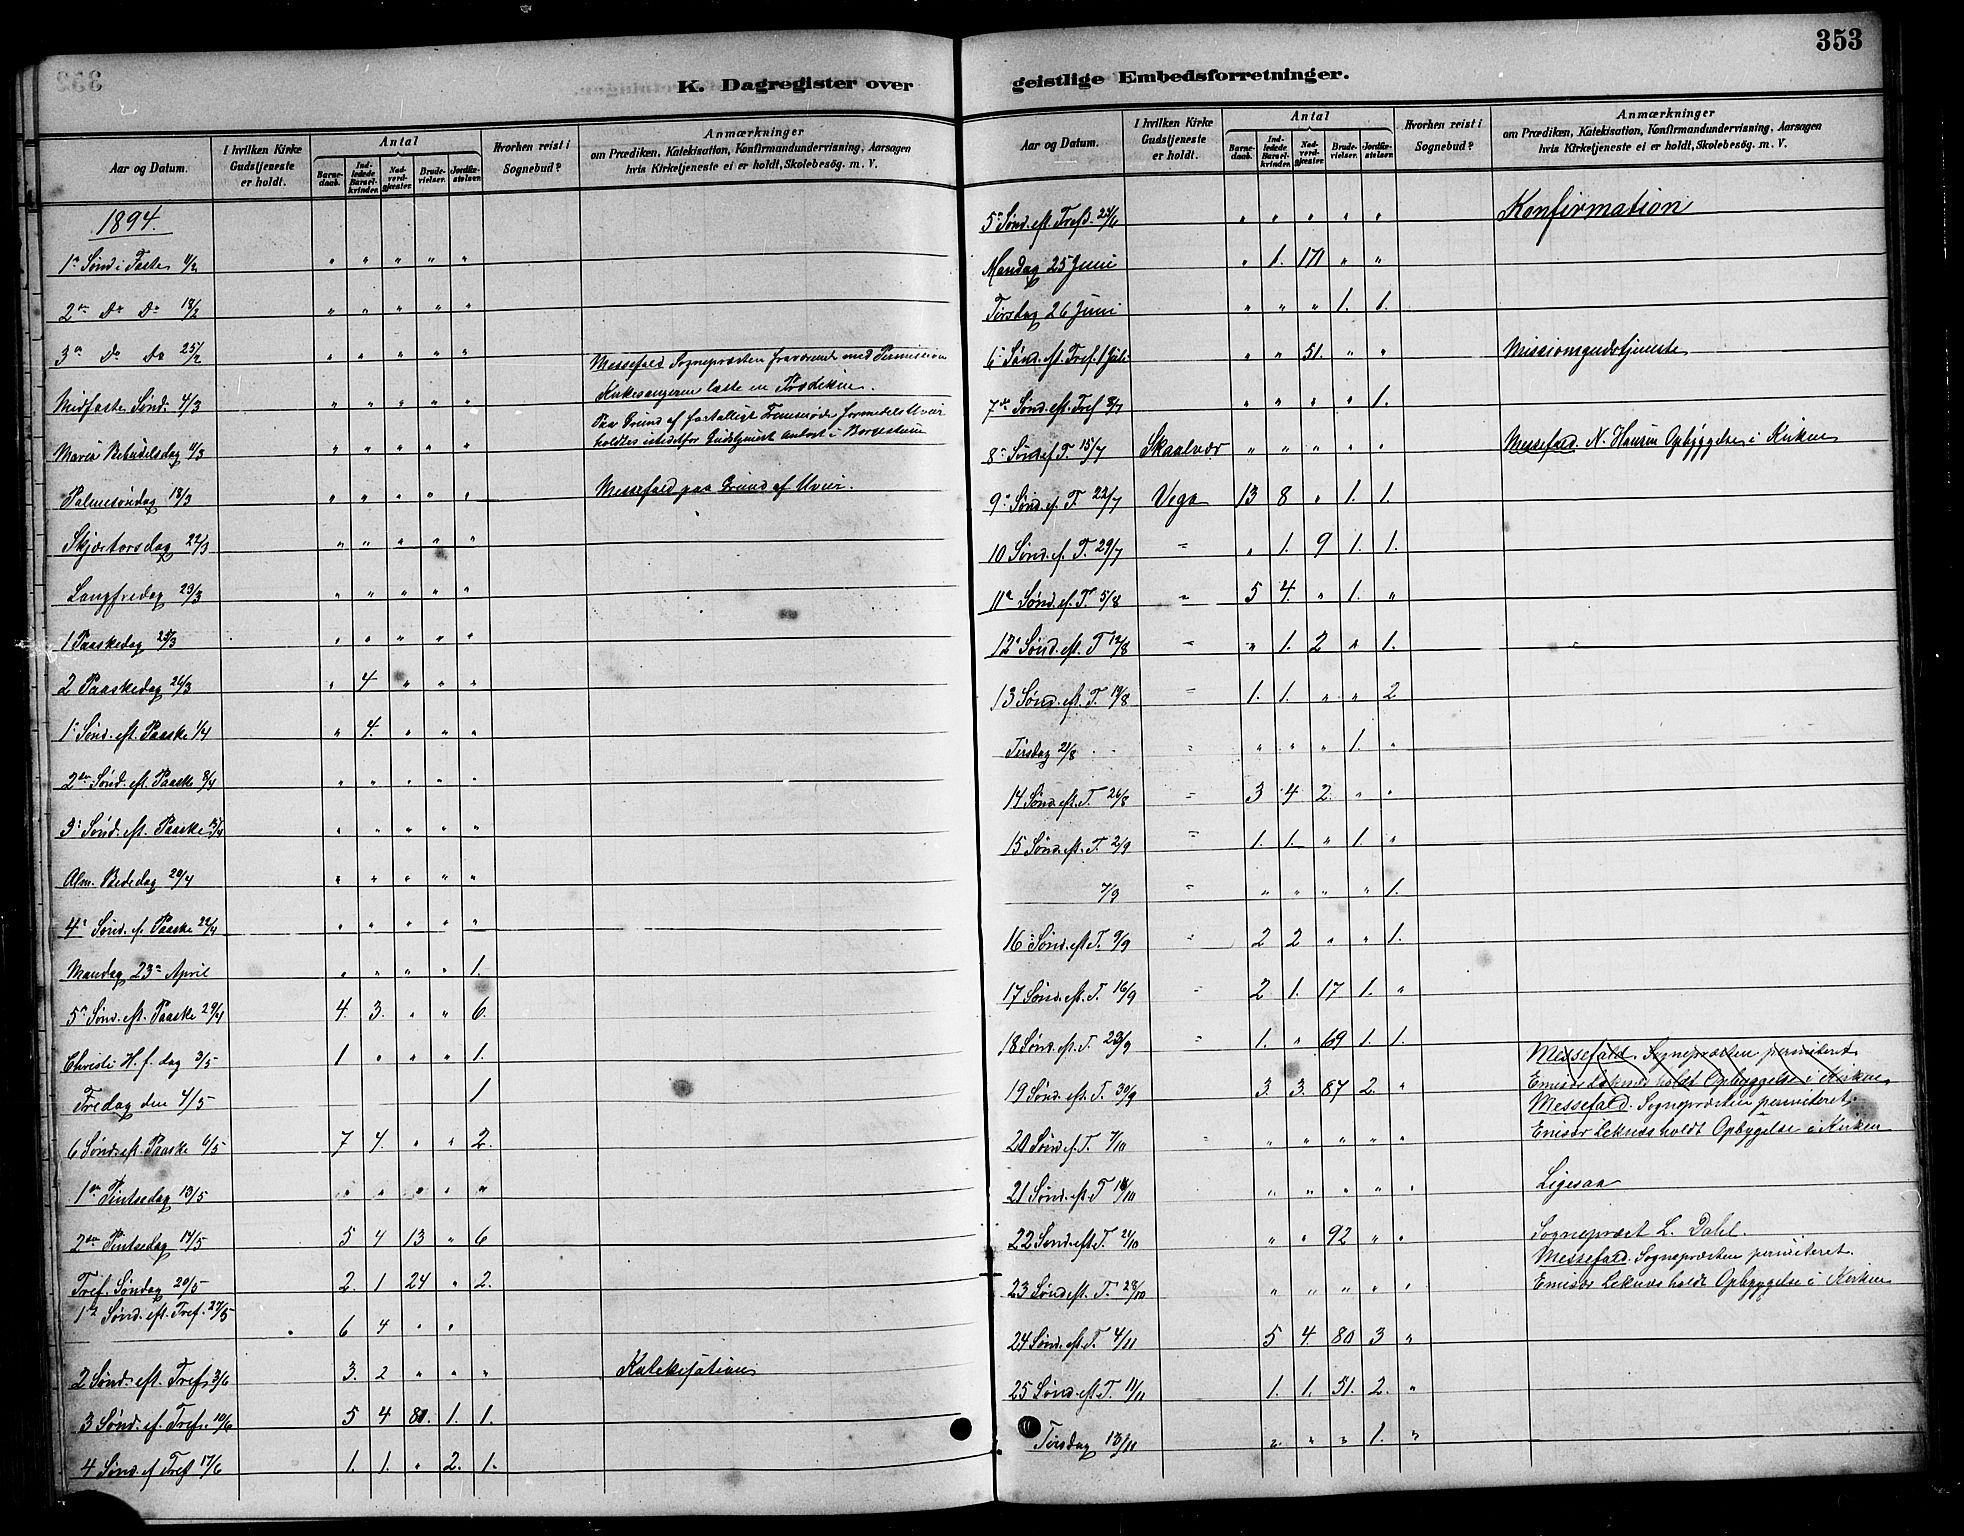 353
K. Dagregister over
geistlige Embedsforretninger.
Aar og Datum.
I hvilken Kirke Gudstjeneste er holdt.
Antal
Barnedaab.
Indledede Barselkvinder.
Nadverdgjester.
Brudevielser.
Jordfæstelser.
Hvorhen reist i Sognebud?
Anmærkninger
om Prædiken, Katekisation, Konfirmandundervisning, Aarsagen
hvis Kirketjeneste ei er holdt, Skolebesøg. m. V.
1894.
1ste Sønd i Faste 11/2 " " " " "
2den Do Do 18/2 " " " " "
3die Do Do 25/2 " " " " " Messefald Sognepræsten fraværende med Permission
Midfaste Sønd. 4/3 " " " " " Kirkesangeren læste en Prædiken.
Paa Grund af faatalligt Fremmøde formedelst Uveir
Mariæ Bebudelsdag 11/3 " " " " " holdtes istedetfor Gudstjeneste Andagt i Borgestuen
Palmesøndag 18/3 " " " " " Messefald paa Grund af Uveir.
Skjærtorsdag 22/3 " " " " "
Langfredag 23/3 " " " " "
1 Paaskedag 25/3 " " " " "
2 Paaskedag 26/3 " 4. " " "
1ste Sønd. eft. Paaske 1/4 " 4. " " "
2den Sønd. eft. Paaske 8/4 " " " " "
3die Sønd. eft. Paaske 15/4 " " " " "
Alm. Bededag 20/4 " " " " "
4de Sønd. ef. Paaske 22/4 " " " " "
Mandag 23de April " " " " 1.
5te Sønd. eft. Paaske 29/4 4. 3. " " 6.
Christi H. f. dag 3/5 1 " " " 1.
Fredag den 4/5 1
6 Sønd. eft. Paaske 6/5 7 4. " " 2.
1ste Pintsedag 13/5 " " " " "
2den Pintsedag 14/5 5 4 13 " 6
Tref. Søndag 20/5 2. 1 24 " 2.
1ste Sønd. eft. Tref. 27/5 6 4 " "
2 Sønd. eft. Tref. 3/6 3. 2 " " " Katekisation
3 Sønd. ef. Tref. 10/6 5 4 81. 1. 1.
4 Sønd. ef Tref 17/6 1. 1. " 2. 1.
Aar og Datum.
I hvilken Kirke Gudstjeneste er holdt.
Antal
Barnedaab.
Indledede Barselkvinder.
Nadverdgjester.
Brudevielser.
Jordfæstelser.
Hvorhen reist i Sognebud?
Anmærkninger
om Prædiken, Katekisation, Konfirmandundervisning, Aarsagen
hvis Kirketjeneste ei er holdt, Skolebesøg. m. V.
5te Sønd. eft. Tref. 24/6 " " " " " Konfirmation
Mandag 25 Juni " 1. 171 " "
Tirsdag 26 Juni " " " 1. 1.
6te Sønd. eft. Tref. 1 Juli " " 51. " " Missionsgudstjeneste
7de Sønd. eft. Tref 8/7 " " " " 1.
8de Sønd ef T. 15/7 Skaalvær " " " " " Messefald. N. Hansen Opbyggelse i Kirken
9de Sønd. ef. T. 22/7 Vega 13 8 " 1. 1.
10 Sønd. ef. T. 29/7 = " 1. 9 1. 1.
11te Sønd. ef. T. 5/8 = 5 4. " 1. "
12te Sønd. eft. T 12/8 = " 1. 2 " 1.
13 Sønd. eft. T. 19/8 = 1. 1. " " 2
Tirsdag 21/8 = " " " 1. "
14 Sønd. eft. T. 26/8 = 3 4 2. " "
15 Sønd. eft. T. 2/9 = 1. 1. " 1. "
7/9 = " " " " 1.
16 Sønd. eft T. 9/9 = 2 2 " " 1.
17 Sønd. eft. T. 16/9 = 2 1. 17 1. "
18 Sønd. eft. T. 23/9 = 1. " 69 1. 1.
Messefald. Sognepræsten permiteret.
19 Sønd. eft. T. 30/9 3. 3. 87 2. " Emisær Leknes holdt Opbyggelse i Kirken
Messefald. Sognepræsten permiteret.
20 Sønd ef. T. 7/10 = " " " " " Emisær Leknes holdt Opbygelse i Kirken
21 Sønd. eft. T 14/10 " " " " " Ligesaa
22 Sønd. eft T. 21/10 " " 92 " " Sognepræst L. Dahl.
Messefald. Sognepræsten permiteret.
23 Sønd eft. T. 28/10 " " " " " Emisær Leknes holdt Opbygelse i Kirken
24 Sønd. eft. T. 4/11 5 4. 80 3 "
25 Sønd. eft T. 11/11 1. 1. 51. 2. "
Tirsdag 13/11 " " " 1. "